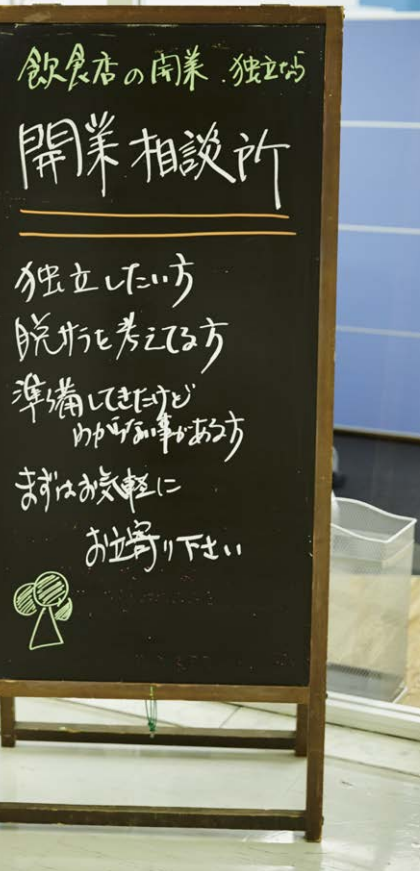 飲食店の開業・独立なら
開業相談所
独立したい方
脱サラを考えてる方
準備してきたけど
わからない事がある方
まずはお気軽に
お立寄り下さい